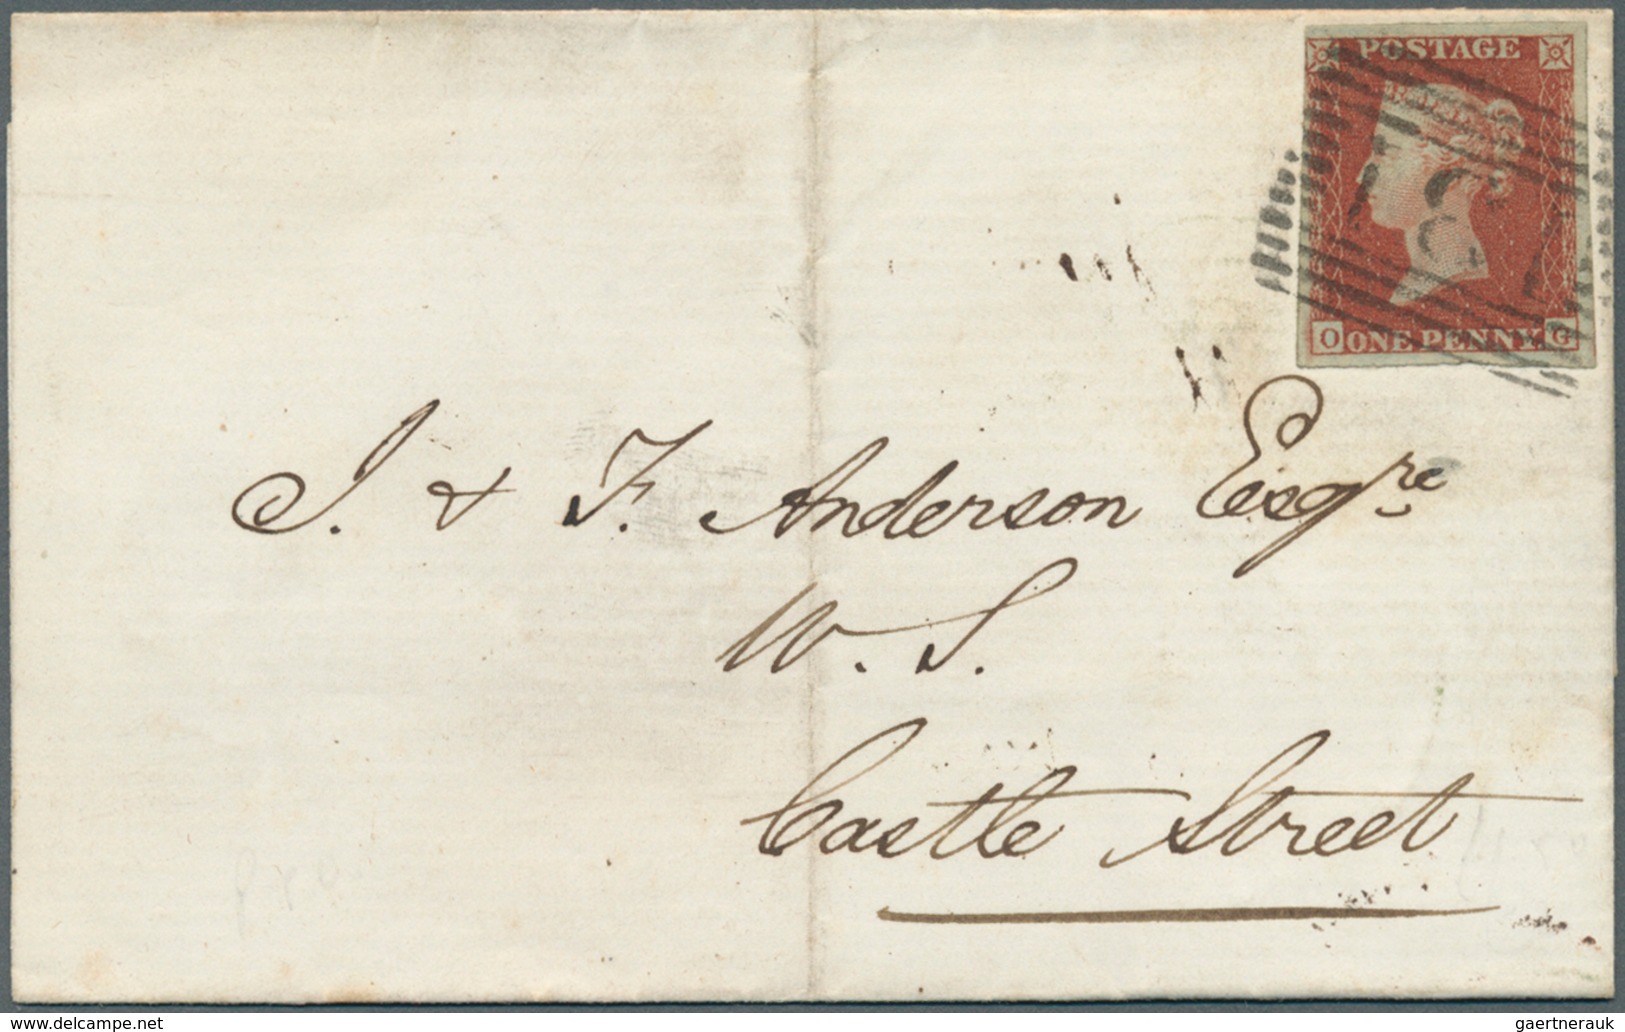 POSTAGE
O ONE PENNY G
J. & F. Anderson Esqre
W. S.
Castle Street
www.delcampe.net
gaertnerauk